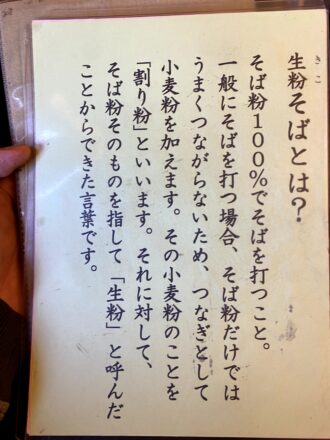 生粉そばとは？
きこ
そば粉１００％でそばを打つこと。
一般にそばを打つ場合、そば粉だけでは
うまくつながらないため、つなぎとして
小麦粉を加えます。その小麦粉のことを
「割り粉」といいます。それに対して、
そば粉そのものを指して「生粉」と呼んだ
ことからできた言葉です。